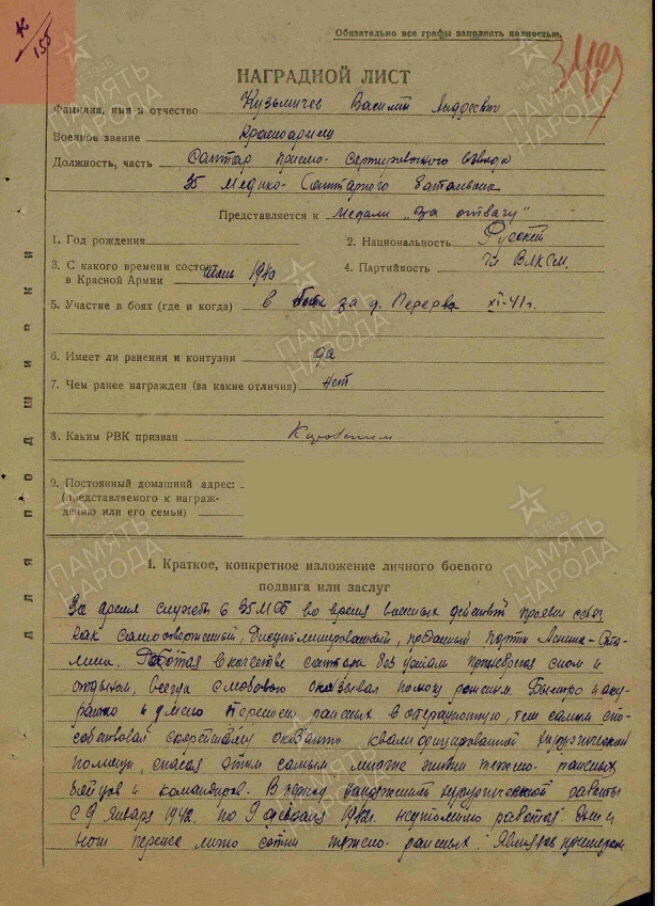 Обязательно все графы заполнять полностью.
НАГРАДНОЙ ЛИСТ
Фамилия, имя и отчество Кузьмичев Василий Андреевич
Военное звание Красноармеец
Должность, часть Санитар приемо-сортировочного взвода
35 Медико-Санитарного батальона
Представляется к медали „За отвагу"
1. Год рождения
2. Национальность Русский
3. С какого времени состоит в Красной Армии 1940
4. Партийность чл ВЛКСМ.
5. Участие в боях (где и когда) в боях за д. Перерва XI-41г.
6. Имеет ли ранения и контузии да
7. Чем ранее награжден (за какие отличия) нет
8. Каким РВК призван
9. Постоянный домашний адрес:
(представляемого к награж-
дению или его семьи)
для подшивки
1. Краткое, конкретное изложение личного боевого
подвига или заслуг
За время службы в 35 МСБ во время военных действий проявил себя
как самоотверженный, дисциплинированный, преданный партии Ленина-Ста-
лина. Работая в качестве санитара без устали пренебрегая сном и
отдыхом, всегда с любовью оказывал помощь раненым. Быстро и акку-
ратно и умело переносил раненых в операционную, тем самым спо-
собствовал скорейшему оказанию квалифицированной хирургической
помощи, спасая этим самым многие жизни тяжело-раненых
бойцов и командиров. В период напряженной хирургической работы
с 9 января 1942. по 9 февраля 1942г. неутомимо работая день и
ночь перенес лично сотни тяжело-раненых. Являясь
ПАМЯТЬ НАРОДА
1941-1945